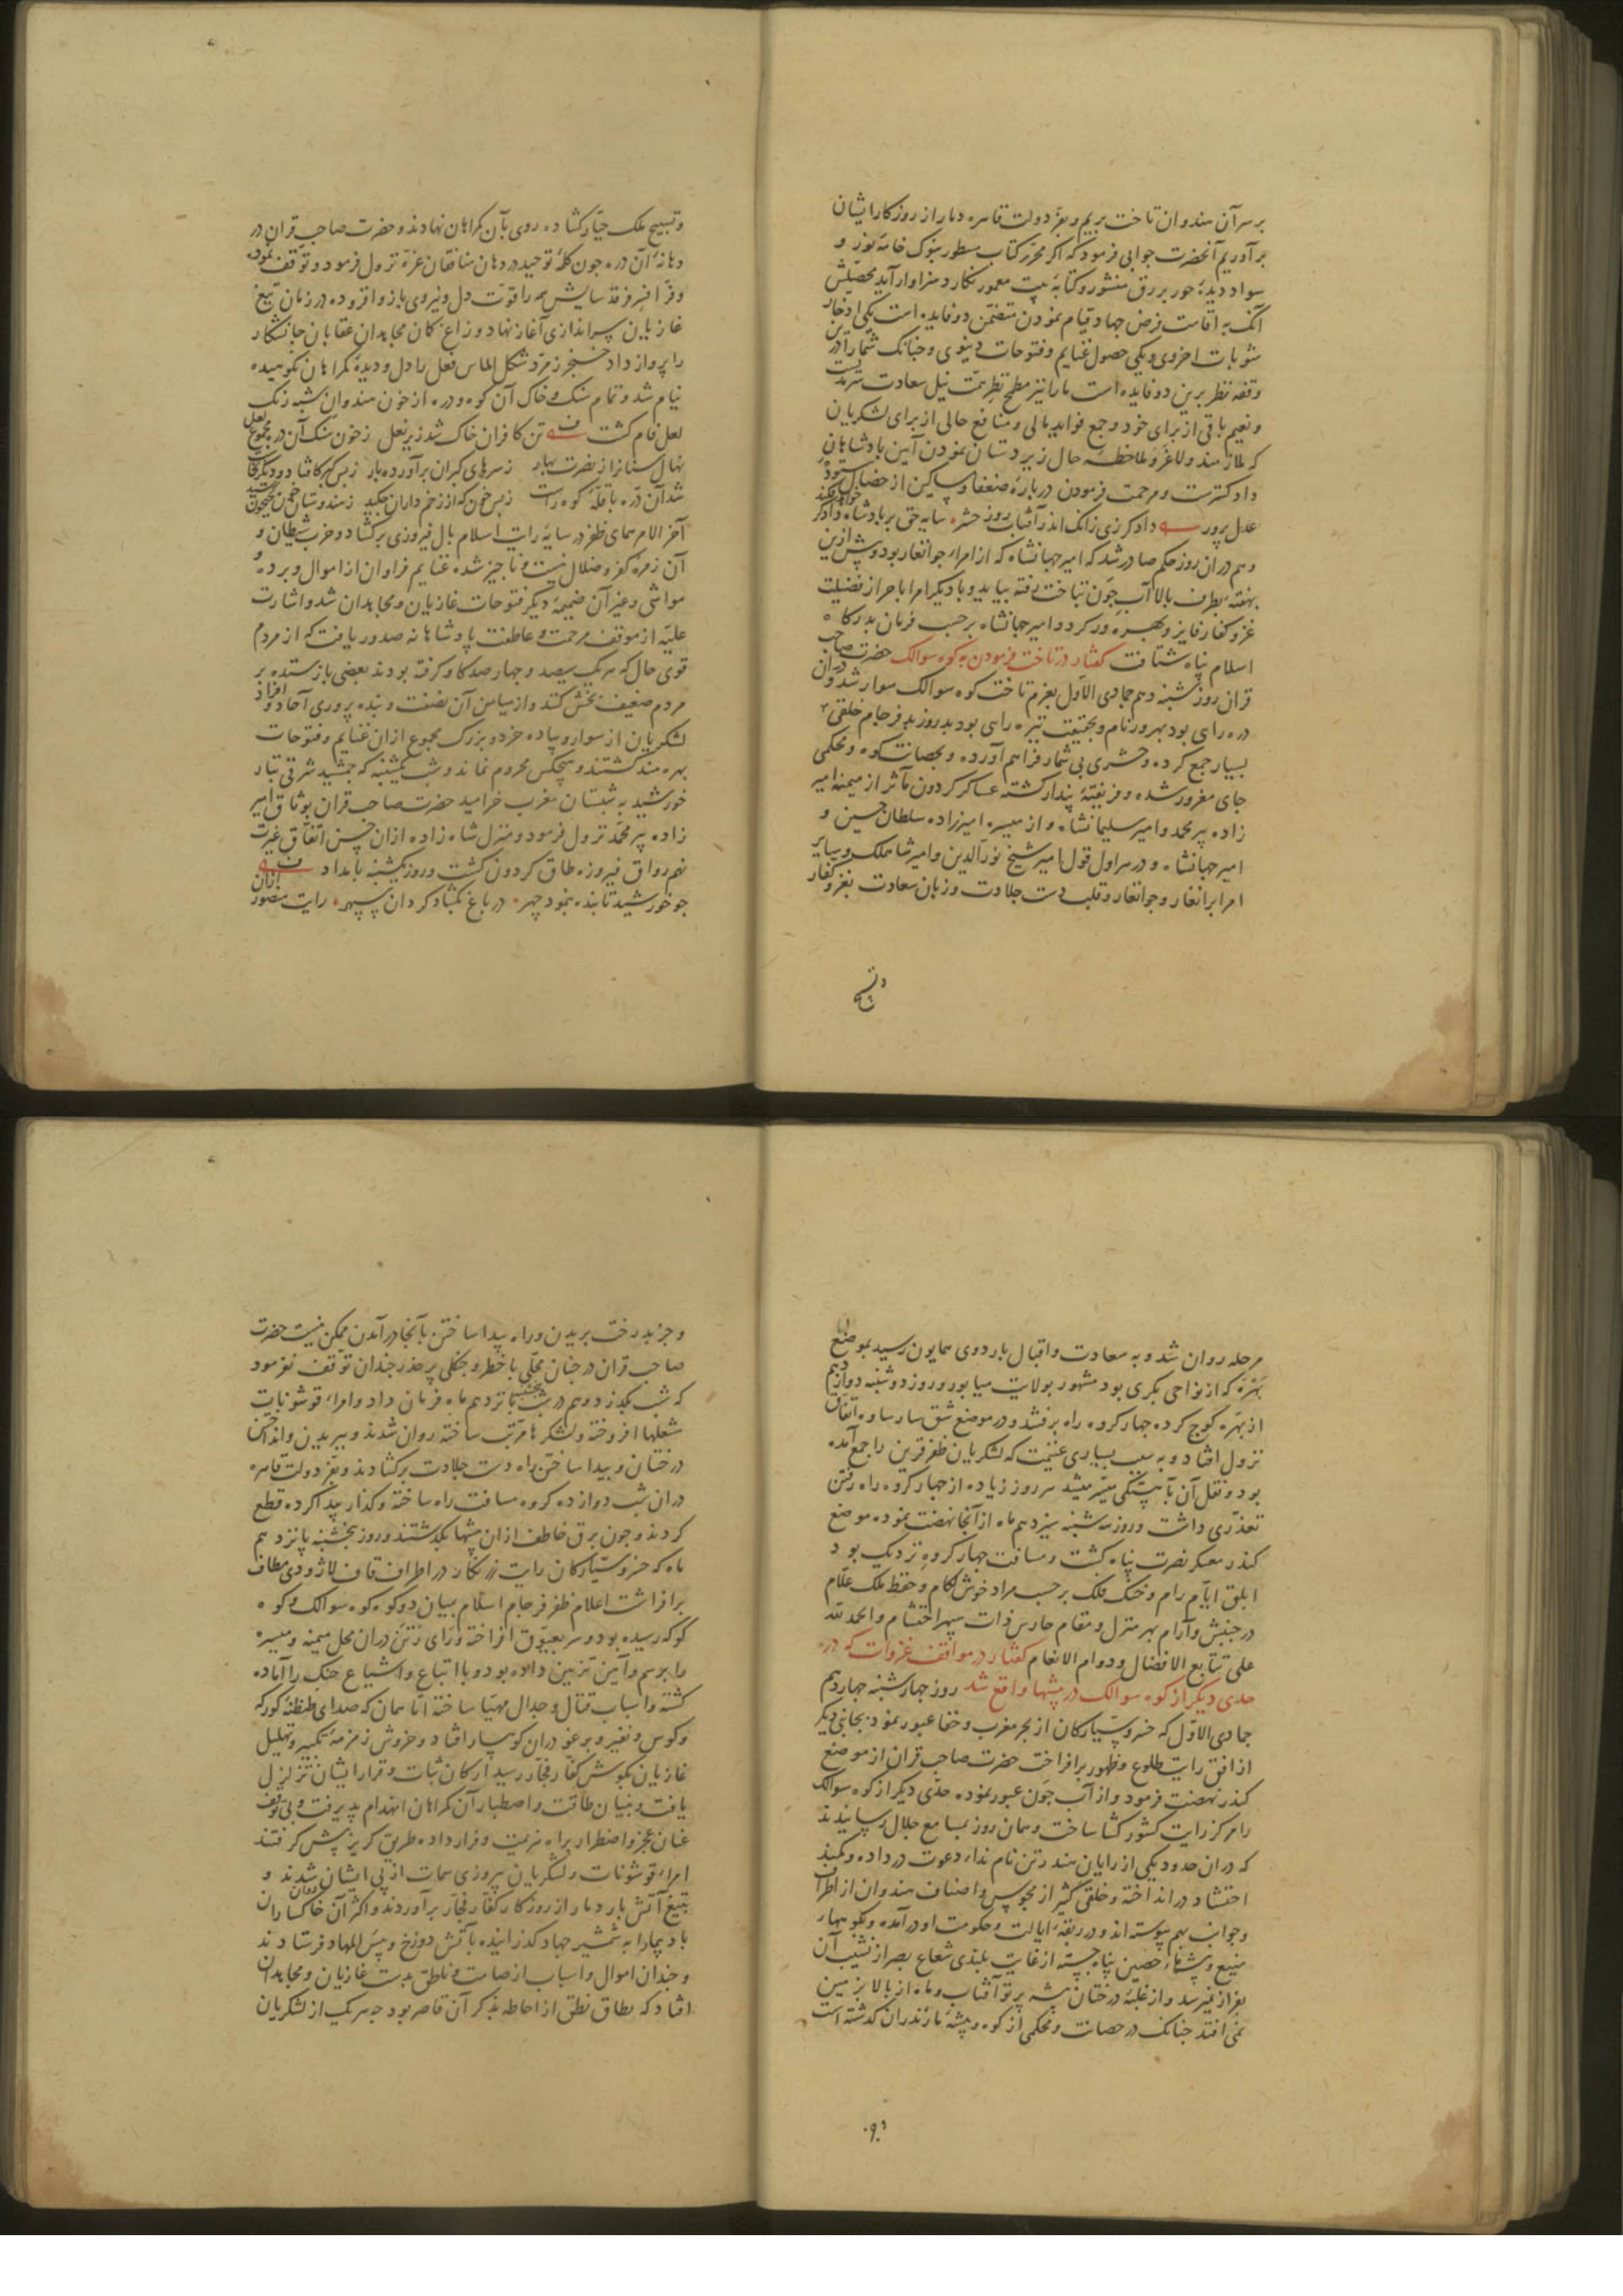 بر سر آن هندوان تاخت بریم و بعز دولت قاهره دمار از روزکار ایشان
برآوریم آنحضرت جوابی فرمود که اکر محرر کتاب مسطور بنوک خامه نور و
سواد دیدهٔ حور بر رق منشور و کتابهٔ بیت معمور نکارد سزاوار آید محصلش
آنک به اقامت فرض جهاد قیام نمودن متضمن دو فایده است یکی ادخار
مثوبات اخروی و یکی حصول غنایم و فتوحات دنیوی و جنانک شما را درین
وقفه نظر برین دو فایده است ما را نیز مطمح نظر همت نیل سعادت سرمدیست
و نعیم باقی از برای خود و جمع فواید مالی و منافع حالی از برای لشکریان
که ملازمند و لاغرو ملاحظهٔ حال زیردستان نمودن آیین پادشاهان
دادکترست و مرحمت فرمودن دربارهٔ ضعفا و مساکین از خصایل ستودهٔ خواقین
عدل پرور داد کر زی زانک اندر آفتاب روز حشر سایه حق بر پادشاه دادکر
وهم دران روز حکم صادر شد که امیر جهانشاه که از امراء جوانغار بود و پیش ازین
بهفتهٔ بطرف بالا آب جون تباخت رفته بیاید و با دیکر امرا باحراز فضیلت
غزو کفار فایز و بهره ور کردد امیر جهانشاه برحسب فرمان بدرکاه
اسلام پناه شتافت کفتار در تاخت فرمودن به کوه سوالک حضرت صاحب
قران روز شنبه دهم جمادی الاول بعزم تاخت کوه سوالک سوار شد و دران
دره رای بود بهروز نام و بحقیقت تیره رای بود بد روز بد فرجام خلقی
بسیار جمع کرده و حشری بی شمار فراهم آورده و بحصانت کوه و محکمی
جای مغرور شده و فریفتهٔ پندار کشته عساکر کردون مآثر از میمنه امیر
زاده پیر محمد و امیر سلیمانشاه و از میسره امیرزاده سلطان حسین و
امیر جهانشاه و در هراول قول امیر شیخ نورالدین و امیر شاه ملک و سایر
امرا برانغار و جوانغار و قلب دست جلادت و زبان سعادت بغزو کفار
و تسبیح ملک جبار کشاده روی بآن کمراهان نهادند و حضرت صاحب قران در
دهانهٔ آن دره جون کلمهٔ توحید در دهان منافقان عزّ نزول فرمود و توقف نموده
و فر افسر فرقد سایش همه را قوت دل و نیروی بازو افزوده در زمان تیغ
غازیان سراندازی آغاز نهاد و زاغ کمان مجاهدان عقابان جانشکار
را پرواز داد خنجر زمرد شکل الماس فعل را دل و دیدهٔ کمراهان نکوهیده
نیام شد و تمام سنک و خاک آن کوه و دره از خون هندوان شبه رنک
لعل فام کشت تن کافران خاک شد زیر نعل ز خون سنک آن دره مجموع لعل
نهال سنانرا ز نصرت بهار ز سرهای کبران برآورده بار
شد آن دره با قله کوه راست ز بس خون که از زخم داران چکید ز هندوستان جیحون
آخر الامر همای ظفر در سایهٔ رایت اسلام بال فیروزی برکشاد و حزب شیطان و
آن زمرهٔ کفر و ضلال نیست و ناجیز شده غنایم فراوان از اموال و برده و
مواشی و غیر آن ضمیمهٔ دیکر فتوحات غازیان و مجاهدان شد و اشارت
علیه از موقف مرحمت و عاطفت پادشاهانه صدور یافت که از مردم
قوی حال که هر یک سیصد و جهارصد کاو کرفته بودند بعضی باز ستده بر
مردم ضعیف بخش کنند و از میامن آن نصفت و بنده پروری آحاد و افراد
لشکریان از سوار و پیاده خرد و بزرک مجموع ازان غنایم و فتوحات
بهره مند کشتند و هیچکس محروم نماند و شب یکشنبه که جمشید شرقی تبار
خورشید به شبستان مغرب خرامید حضرت صاحب قران بوثاق امیر
زاده پیر محمد نزول فرمود و منزل شاهزاده ازان حسن اتفاق غیرت
نهم رواق فیروزه طاق کردون کشت و روز یکشنبه بامداد
جو خورشید تابنده بنمود چهر در باغ بکشاد کردان سپهر رایت منصور ازان
مرحله روان شد و به سعادت و اقبال باردوی همایون رسید بموضع
بهره که از نواحی بکری بود مشهور بولایت میاپور و روز دوشنبه دوازدهم
از بهره کوچ کرده جهار کروه راه برفتند و در موضع شق سارساوه اتفاق
نزول افتاد و به سبب بسیاری غنیمت که لشکریان ظفر قرین را جمع آمده
بود و نقل آن بآهستکی میسر میشد هر روز زیاده از جهار کروه راه رفتن
تعذری داشت و روز سه شنبه سیزدهم ماه از آنجا نهضت نموده موضع
کندر معسکر نصرت پناه کشت و مسافت جهار کروه نزدیک بود
ابلق ایام رام و خنک فلک برحسب مراد خوش لکام و حفظ ملک علام
در جنبش و آرام بهر منزل و مقام حارس ذات سپهر احتشام و الحمد لله
علی تتابع الافضال و دوام الانعام کفتار در مواقف غزوات که در
حدی دیکر از کوه سوالک در بیشها واقع شد روز جهارشنبه جهاردهم
جمادی الاول که خسرو سیارکان از بحر مغرب و خفا عبور نموده بجانبی دیکر
از افق رایت طلوع و ظهور برافراخت حضرت صاحب قران از موضع
کندر نهضت فرمود و از آب جون عبور نموده حدی دیکر از کوه سوالک
را مرکز رایت کشورکشا ساخت و همان روز بمسامع جلال رسانیدند
که دران حدود یکی از رایان هند رتن نام نداء دعوت در داده و کمند
احتشاد در انداخته و خلقی کثیر از مجوس و اصناف هندوان از اطراف
و جوانب بهم پیوسته اند و در ربقهٔ ایالت و حکومت او درآمده و بکوههاء
منیع و بیشهاء حصین پناه جسته از غایت بلندی شعاع بصر از نشیب آن
بفراز نمیرسد و از غلبهٔ درختان بیشه پرتو آفتاب و ماه از بالا بزمین
نمی افتد جنانک در حصانت و محکمی از کوه و بیشهٔ مازندران کذشته است
و جز بدرخت بریدن و راه پیدا ساختن بآنجا درآمدن ممکن نیست حضرت
صاحب قران در جنان محلی با خطر و جنکلی پرحذر جندان توقف نفرمود
که شب بکذرد و هم در شب پنجشنبه پانزدهم ماه فرمان داد و امراء قوشونات
مشعلها افروخته و لشکرها مرتب ساخته روان شدند و ببریدن و انداختن
درختان و پیدا ساختن راه دست جلادت برکشادند و بعز دولت قاهره
دران شب دوازده کروه مسافت راه ساخته و کذار پیدا کرده قطع
کردند و جون برق خاطف ازان بیشها بکذشتند و روز پنجشنبه پانزدهم
ماه که خسرو سیارکان رایت زرنکار در اطراف قاف لاژوردی مطاف
برافراشت اعلام ظفر فرجام اسلام بمیان دو کوه کوه سوالک و کوه
کوکه رسیده بود و سر بعیوق افراخته و رای رتن دران محل میمنه و میسره
را برسم و آیین تزیین داده بود و با اتباع و اشیاع جنک را آماده
کشته و اسباب قتال و جدال مهیا ساخته اما همان که صدای طنطنهٔ کورکه
و کوس و نفیر و برغو دران کوهسار افتاد و خروش زمزمهٔ تکبیر و تهلیل
غازیان بکوش کفار فجار رسید ارکان ثبات و قرار ایشان تزلزل
یافت و بنیان طاقت و اصطبار آن کمراهان انهدام پذیرفت و بی توقف
عنان عجز و اضطرار براه هزیمت و فرار داده طریق کریز پیش کرفتند
امراء قوشونات و لشکریان پیروزی سمات از پی ایشان شدند و
بتیغ آتش بار دمار از روزکار کفار فجار برآوردند و اکثر آن خاکساران
باد پیما را به شمشیر جهاد کذرانیده بآتش دوزخ و بئس المهاد فرستادند
و جندان اموال و اسباب از صامت و ناطق بدست غازیان و مجاهدان
افتاد که نطاق نطق از احاطه بذکر آن قاصر بود جه هر یک از لشکریان